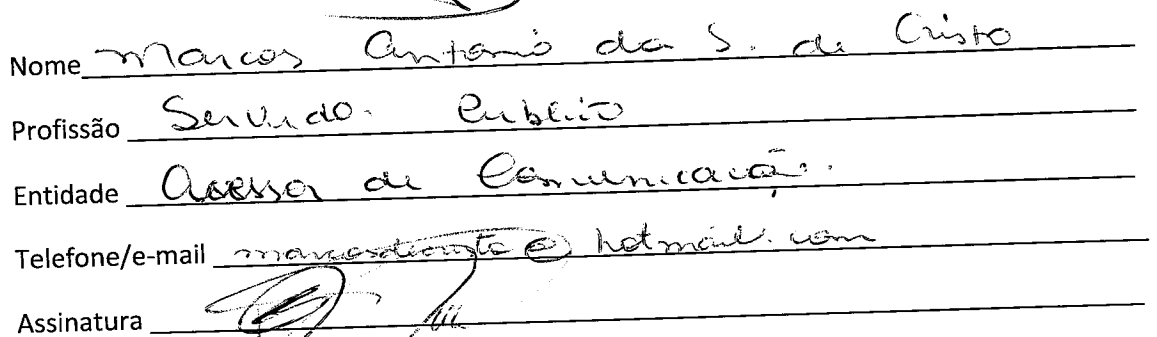 Nome Marcos Antonio da S. de Cristo
Profissão Servido. Publico
Entidade Acessor de Comunicação.
Telefone/e-mail marcosdecristo@hotmail.com
Assinatura